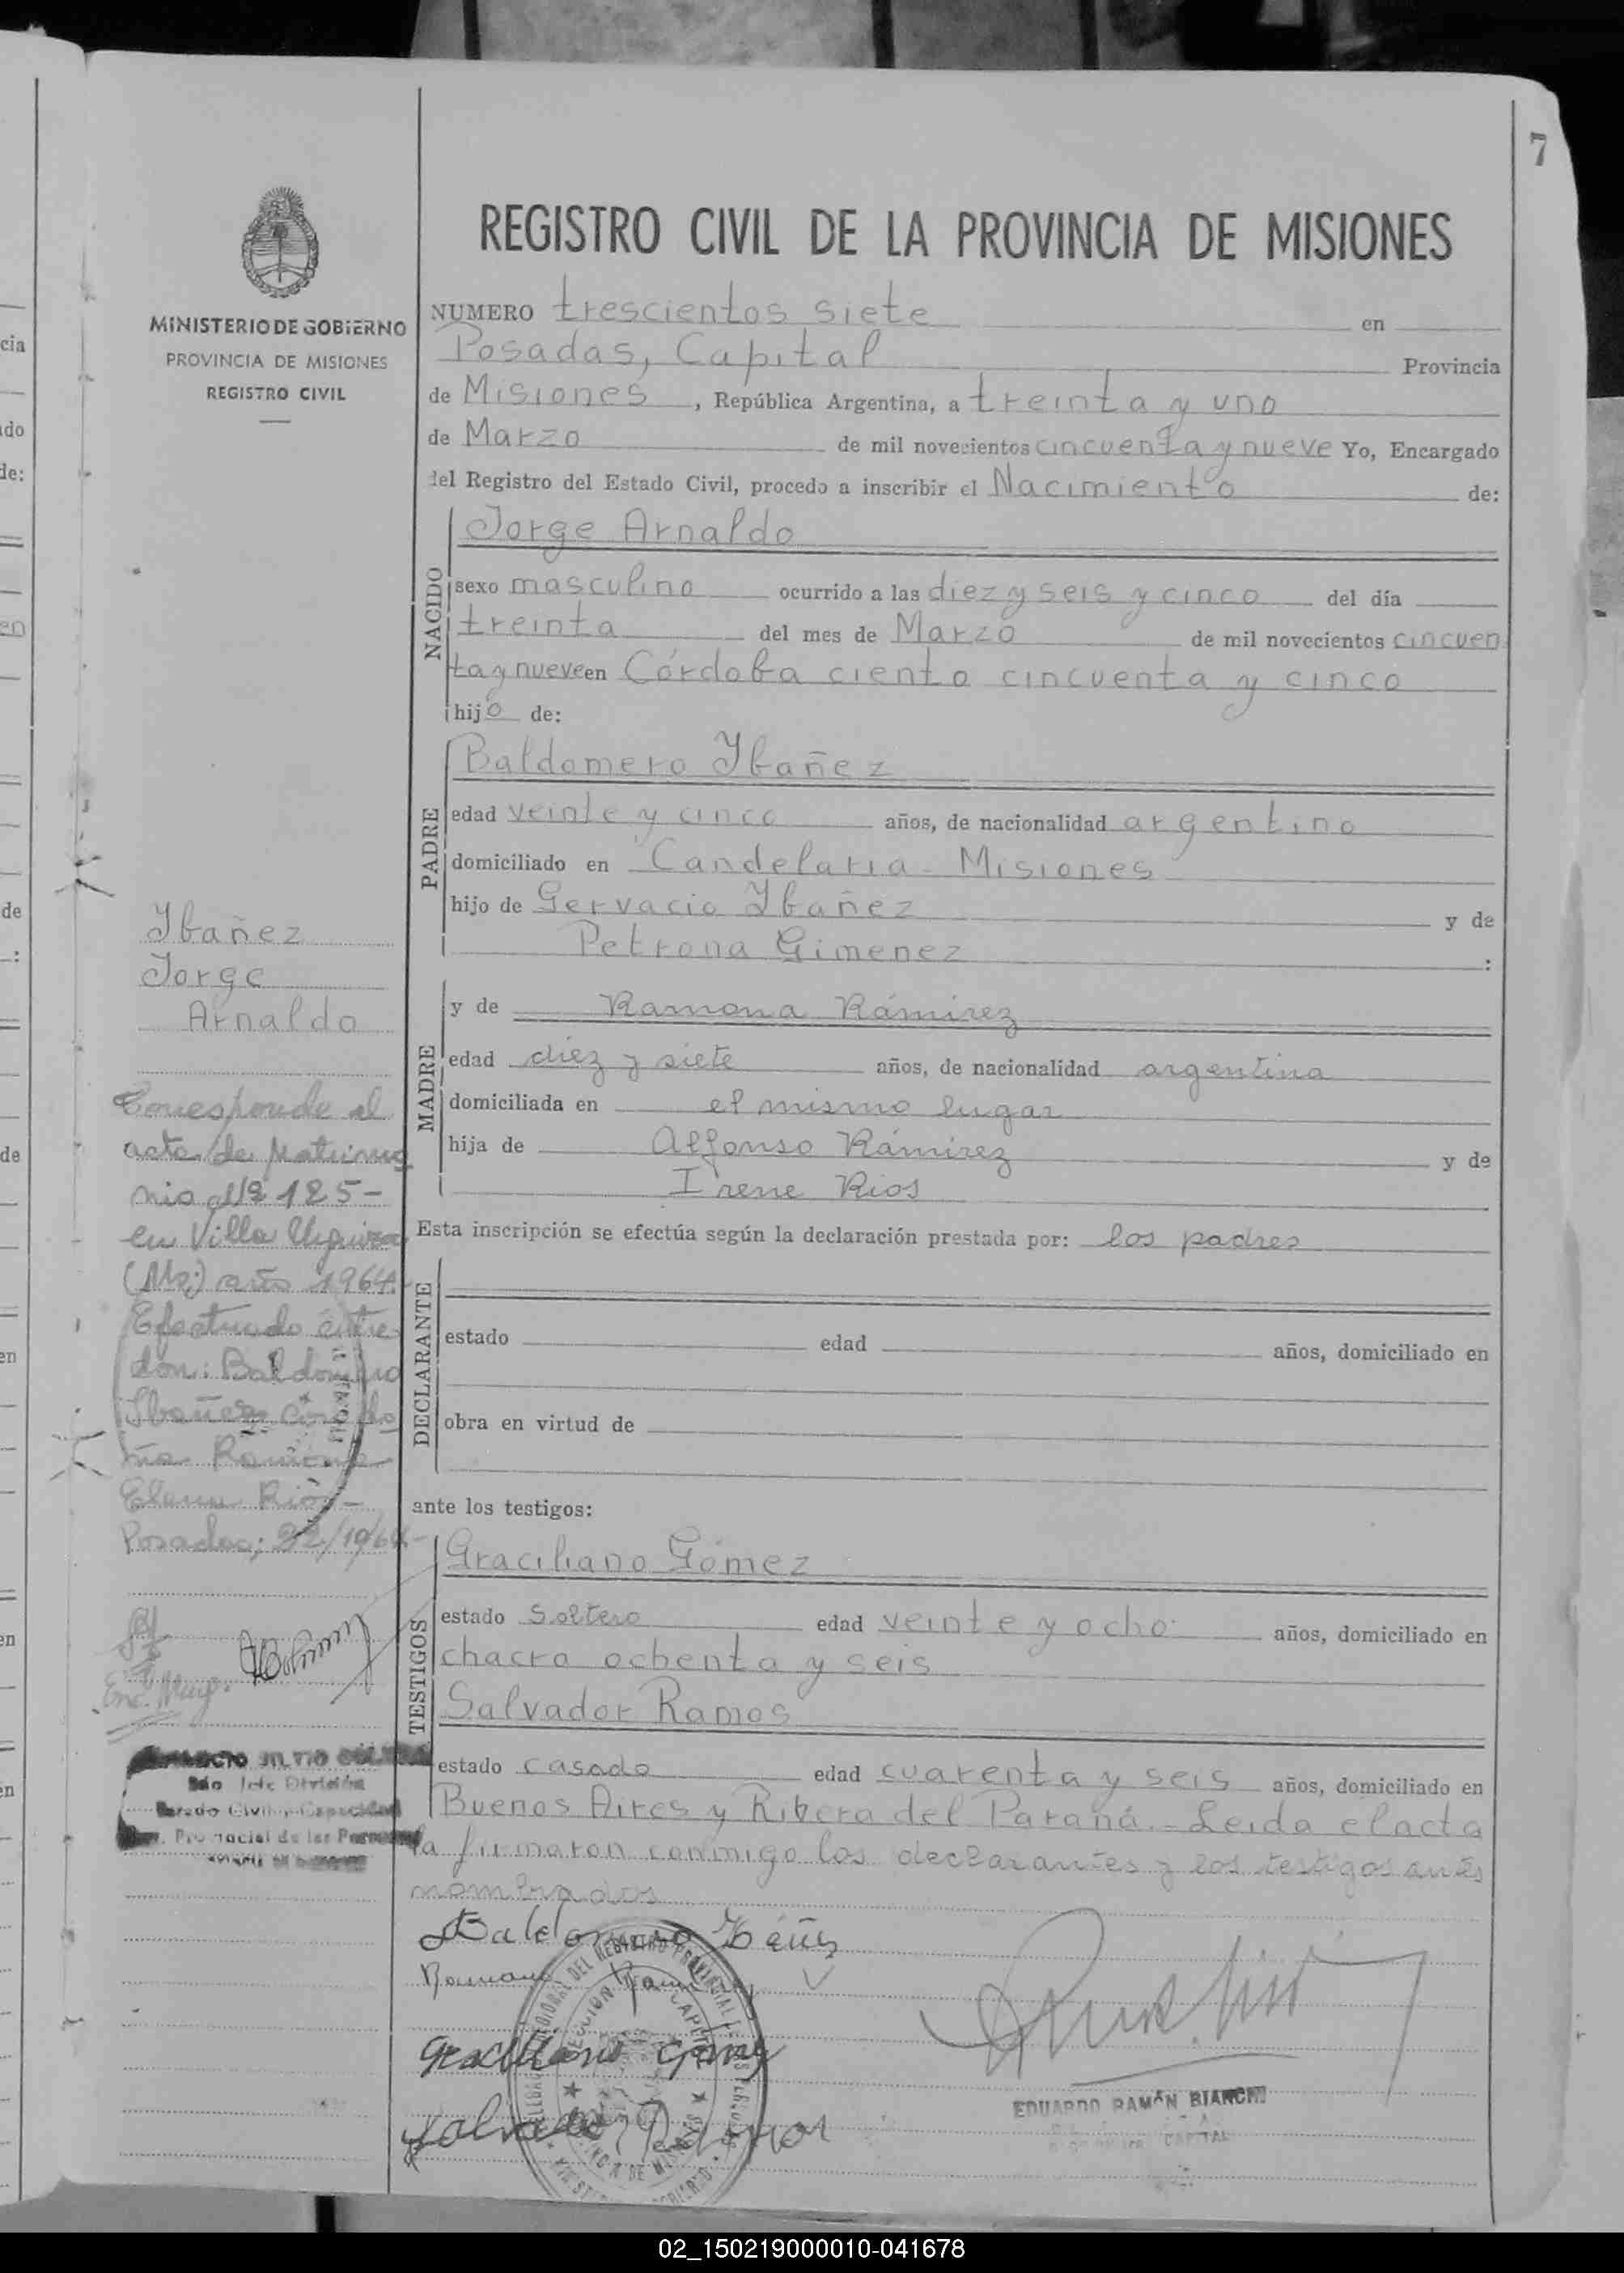 7
REGISTRO CIVIL DE LA PROVINCIA DE MISIONES
MINISTERIO DE GOBIERNO
PROVINCIA DE MISIONES
REGISTRO CIVIL
NUMERO trescientos siete en
Posadas, Capital Provincia
de Misiones, República Argentina, a treinta y uno
de Marzo de mil novecientos cincuenta y nueve Yo, Encargado
del Registro del Estado Civil, procedo a inscribir el Nacimiento de:
NACIDO
Jorge Arnaldo
sexo masculino ocurrido a las diez y seis y cinco del día
treinta del mes de Marzo de mil novecientos cincuen
ta y nueve en Córdoba ciento cincuenta y cinco
hijo de:
PADRE
Baldomero Ybañez
edad veinte y cinco años, de nacionalidad argentino
domiciliado en Candelaria - Misiones
hijo de Gervacio Ybañez y de
Petrona Gimenez :
MADRE
y de Ramona Rámirez
edad diez y siete años, de nacionalidad argentina
domiciliada en el mismo lugar
hija de Alfonso Rámirez y de
Irene Rios
Esta inscripción se efectúa según la declaración prestada por: los padres
DECLARANTE
estado edad años, domiciliado en
obra en virtud de
ante los testigos:
TESTIGOS
Graciliano Gómez
estado Soltero edad veinte y ocho años, domiciliado en
chacra ochenta y seis
Salvador Ramos
estado casado edad cuarenta y seis años, domiciliado en
Buenos Aires y Ribera del Paraná.- Leida el acta
la firmaron conmigo los declarantes y los testigos antes
nombrados
Baldomero Ybáñez
Ramona Ramirez
Graciliano Gómez
Salvador Ramos
EDUARDO RAMÓN BIANCHI
CAPITAL
Ybañez
Jorge
Arnaldo
Corresponde al
acta de Matrimo
nio Nº 125-
en Villa Urquiza
(Ms:) año 1964.
Efectuado entre
don: Baldomero
Ibañez con do
ña Ramona
Elena Rios-
Posadas; 22/1964-
Enc. Muy.
Jefe División
Estado Civil y Capacidad
Provincial de las Personas
02_150219000010-041678